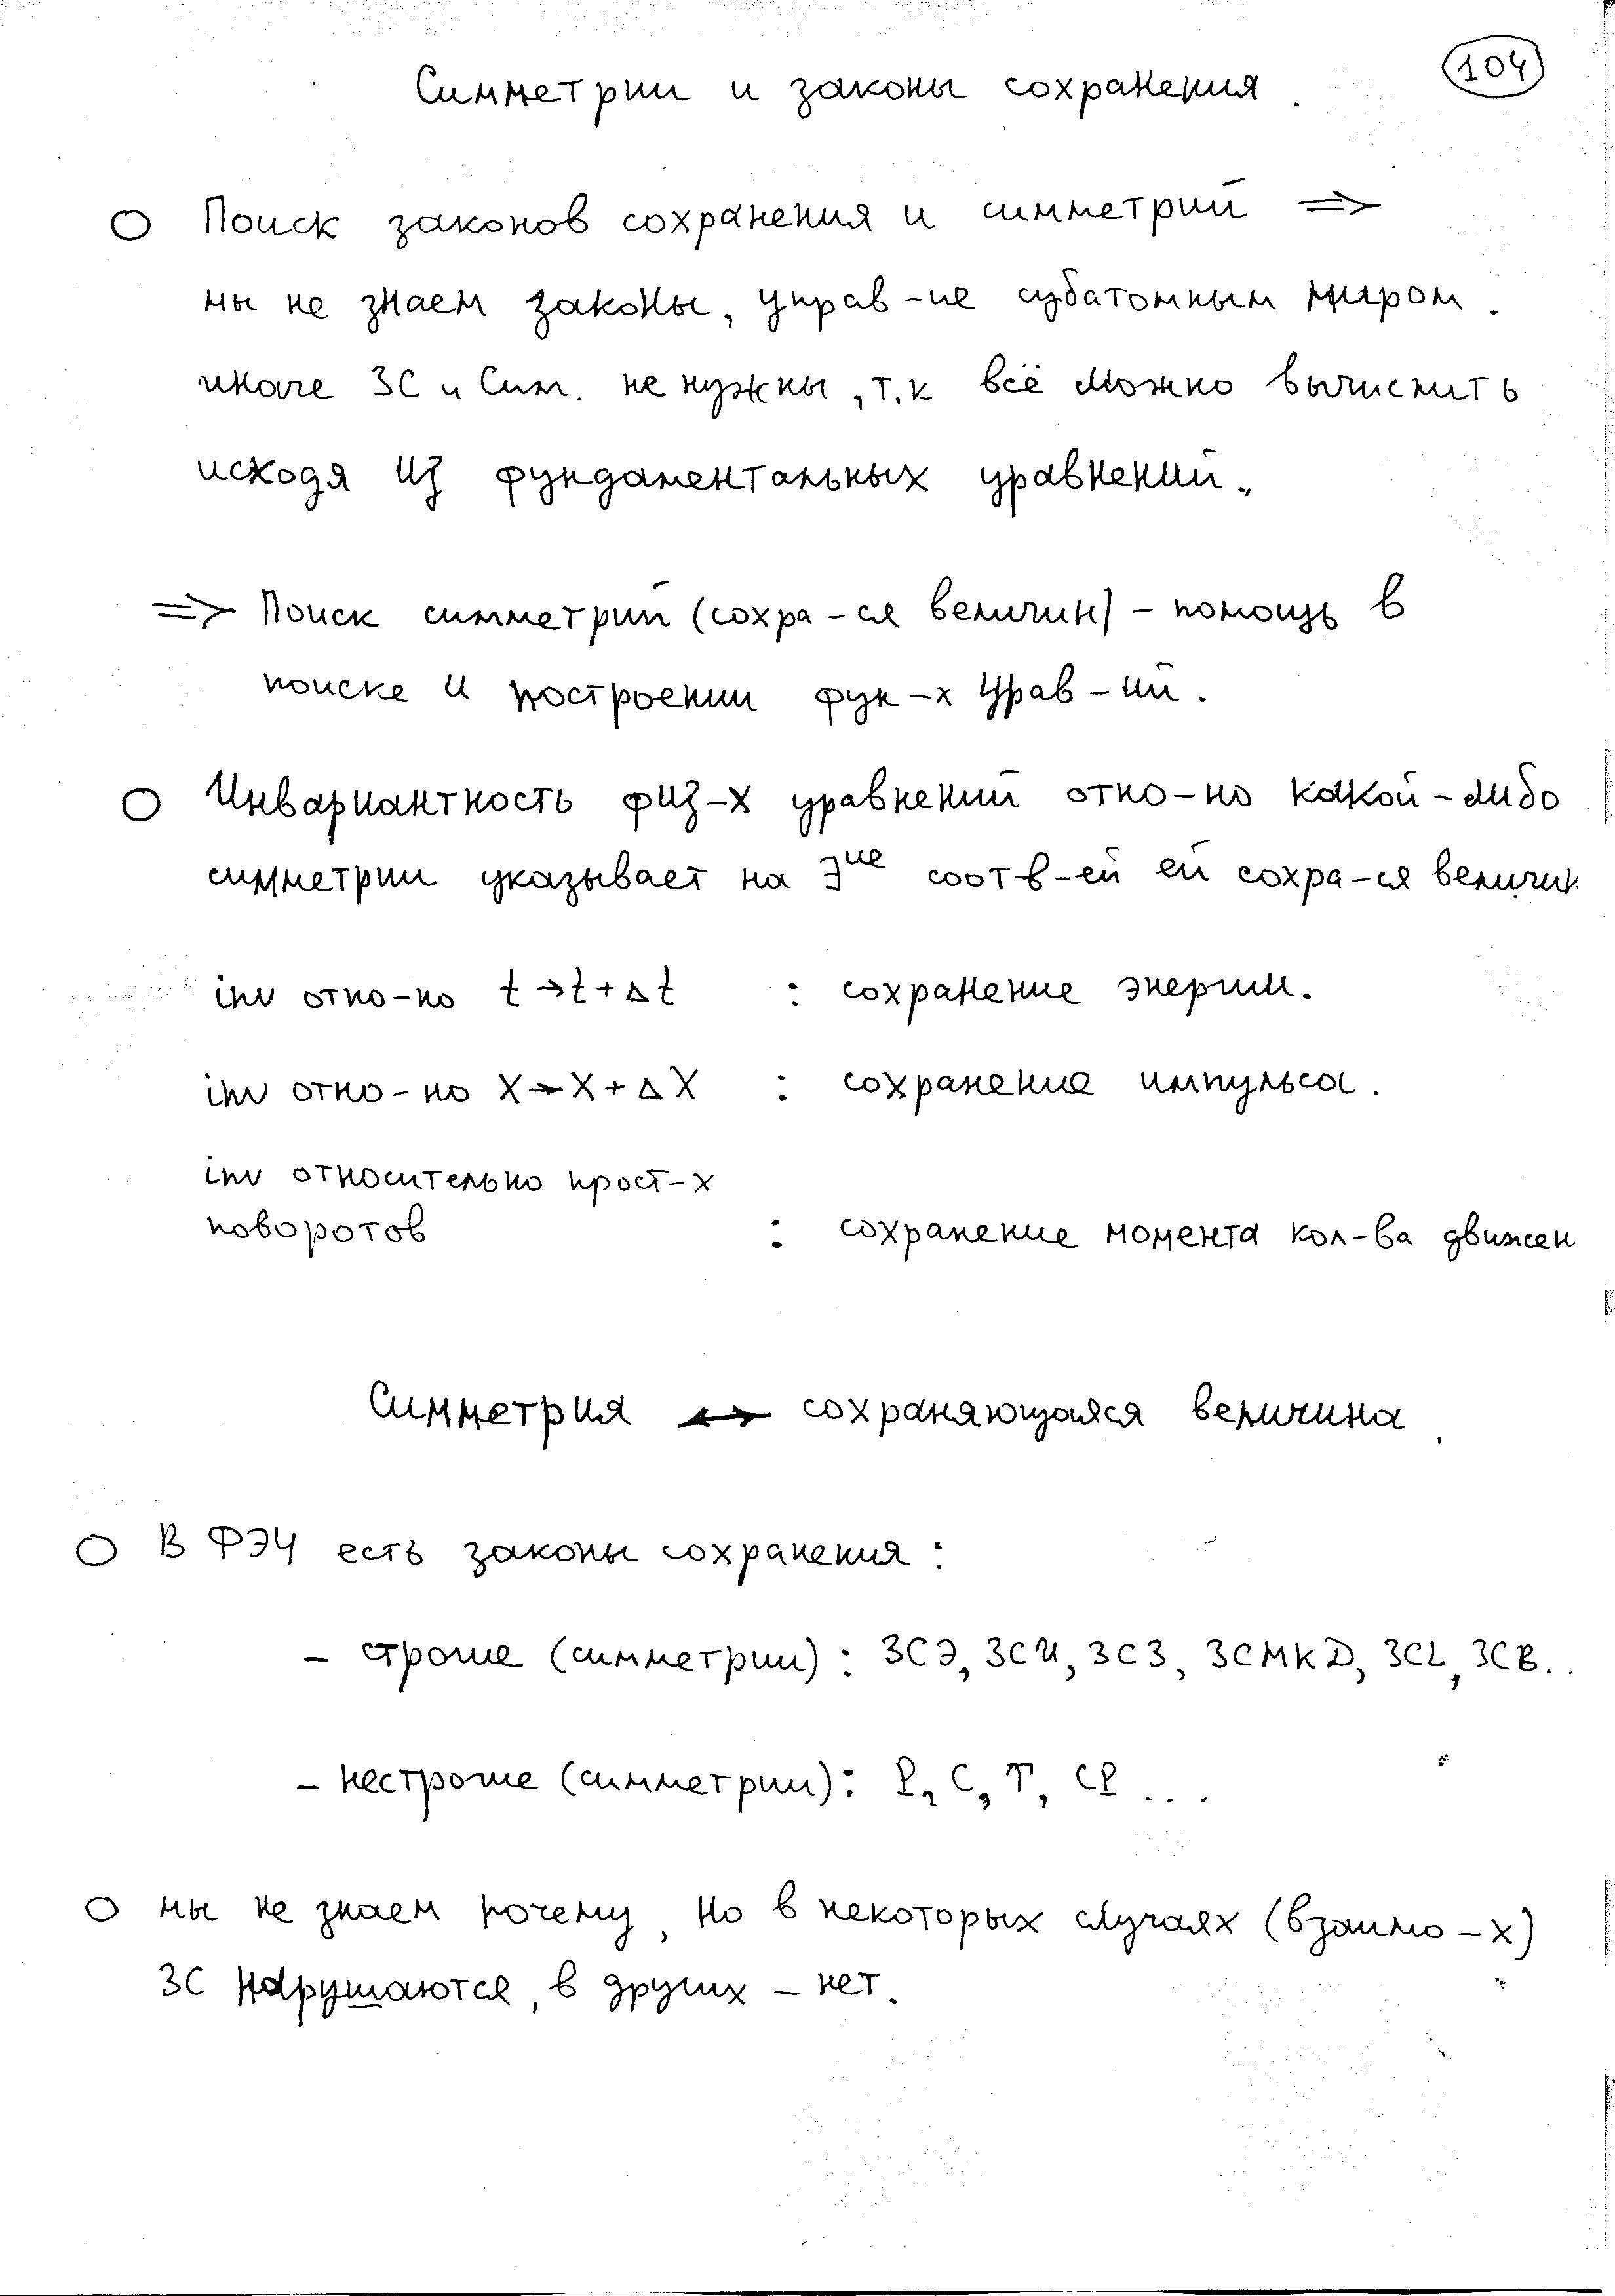 104
Симметрии и законы сохранения.
○ Поиск законов сохранения и симметрий ⇒
мы не знаем законы, управ-ие субатомным миром.
иначе ЗС и Сим. не нужны, т.к всё можно вычислить
исходя из фундаментальных уравнений.
⇒ Поиск симметрий (сохра-ся величин) - помощь в
поиске и построении фун-х Урав-ий.
○ Инвариантность физ-х уравнений отно-но какой-либо
симметрии указывает на ∃ие соотв-ей ей сохра-ся величин
inv отно-но t→t+Δt : сохранение энергии.
inv отно-но X→X+ΔX : сохранение импульса.
inv относительно прост-х
поворотов : сохранение момента кол-ва движен
Симметрия ↔ сохраняющаяся величина.
○ В ФЭЧ есть законы сохранения:
- строгие (симметрии): ЗСЭ, ЗСИ, ЗСЗ, ЗСМКД, ЗСL, ЗСB..
- нестрогие (симметрии): P, C, T, CP ...
○ мы не знаем почему, но в некоторых случаях (взаимо-х)
ЗС нарушаются, в других - нет.